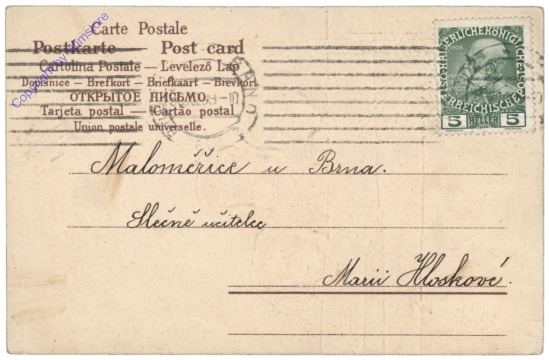 Carte Postale
Postkarte — Post card
Cartolina Postale — Levelező Lap
Dopisnice — Brefkort — Briefkaart — Brevkort
ОТКРЫТОЕ ПИСЬМО.
Tarjeta postal Cartão postal
Union postale universelle.
5 HELLER 5
Maloměřice u Brna.
Slečně učitelce
Marii Hloskové.